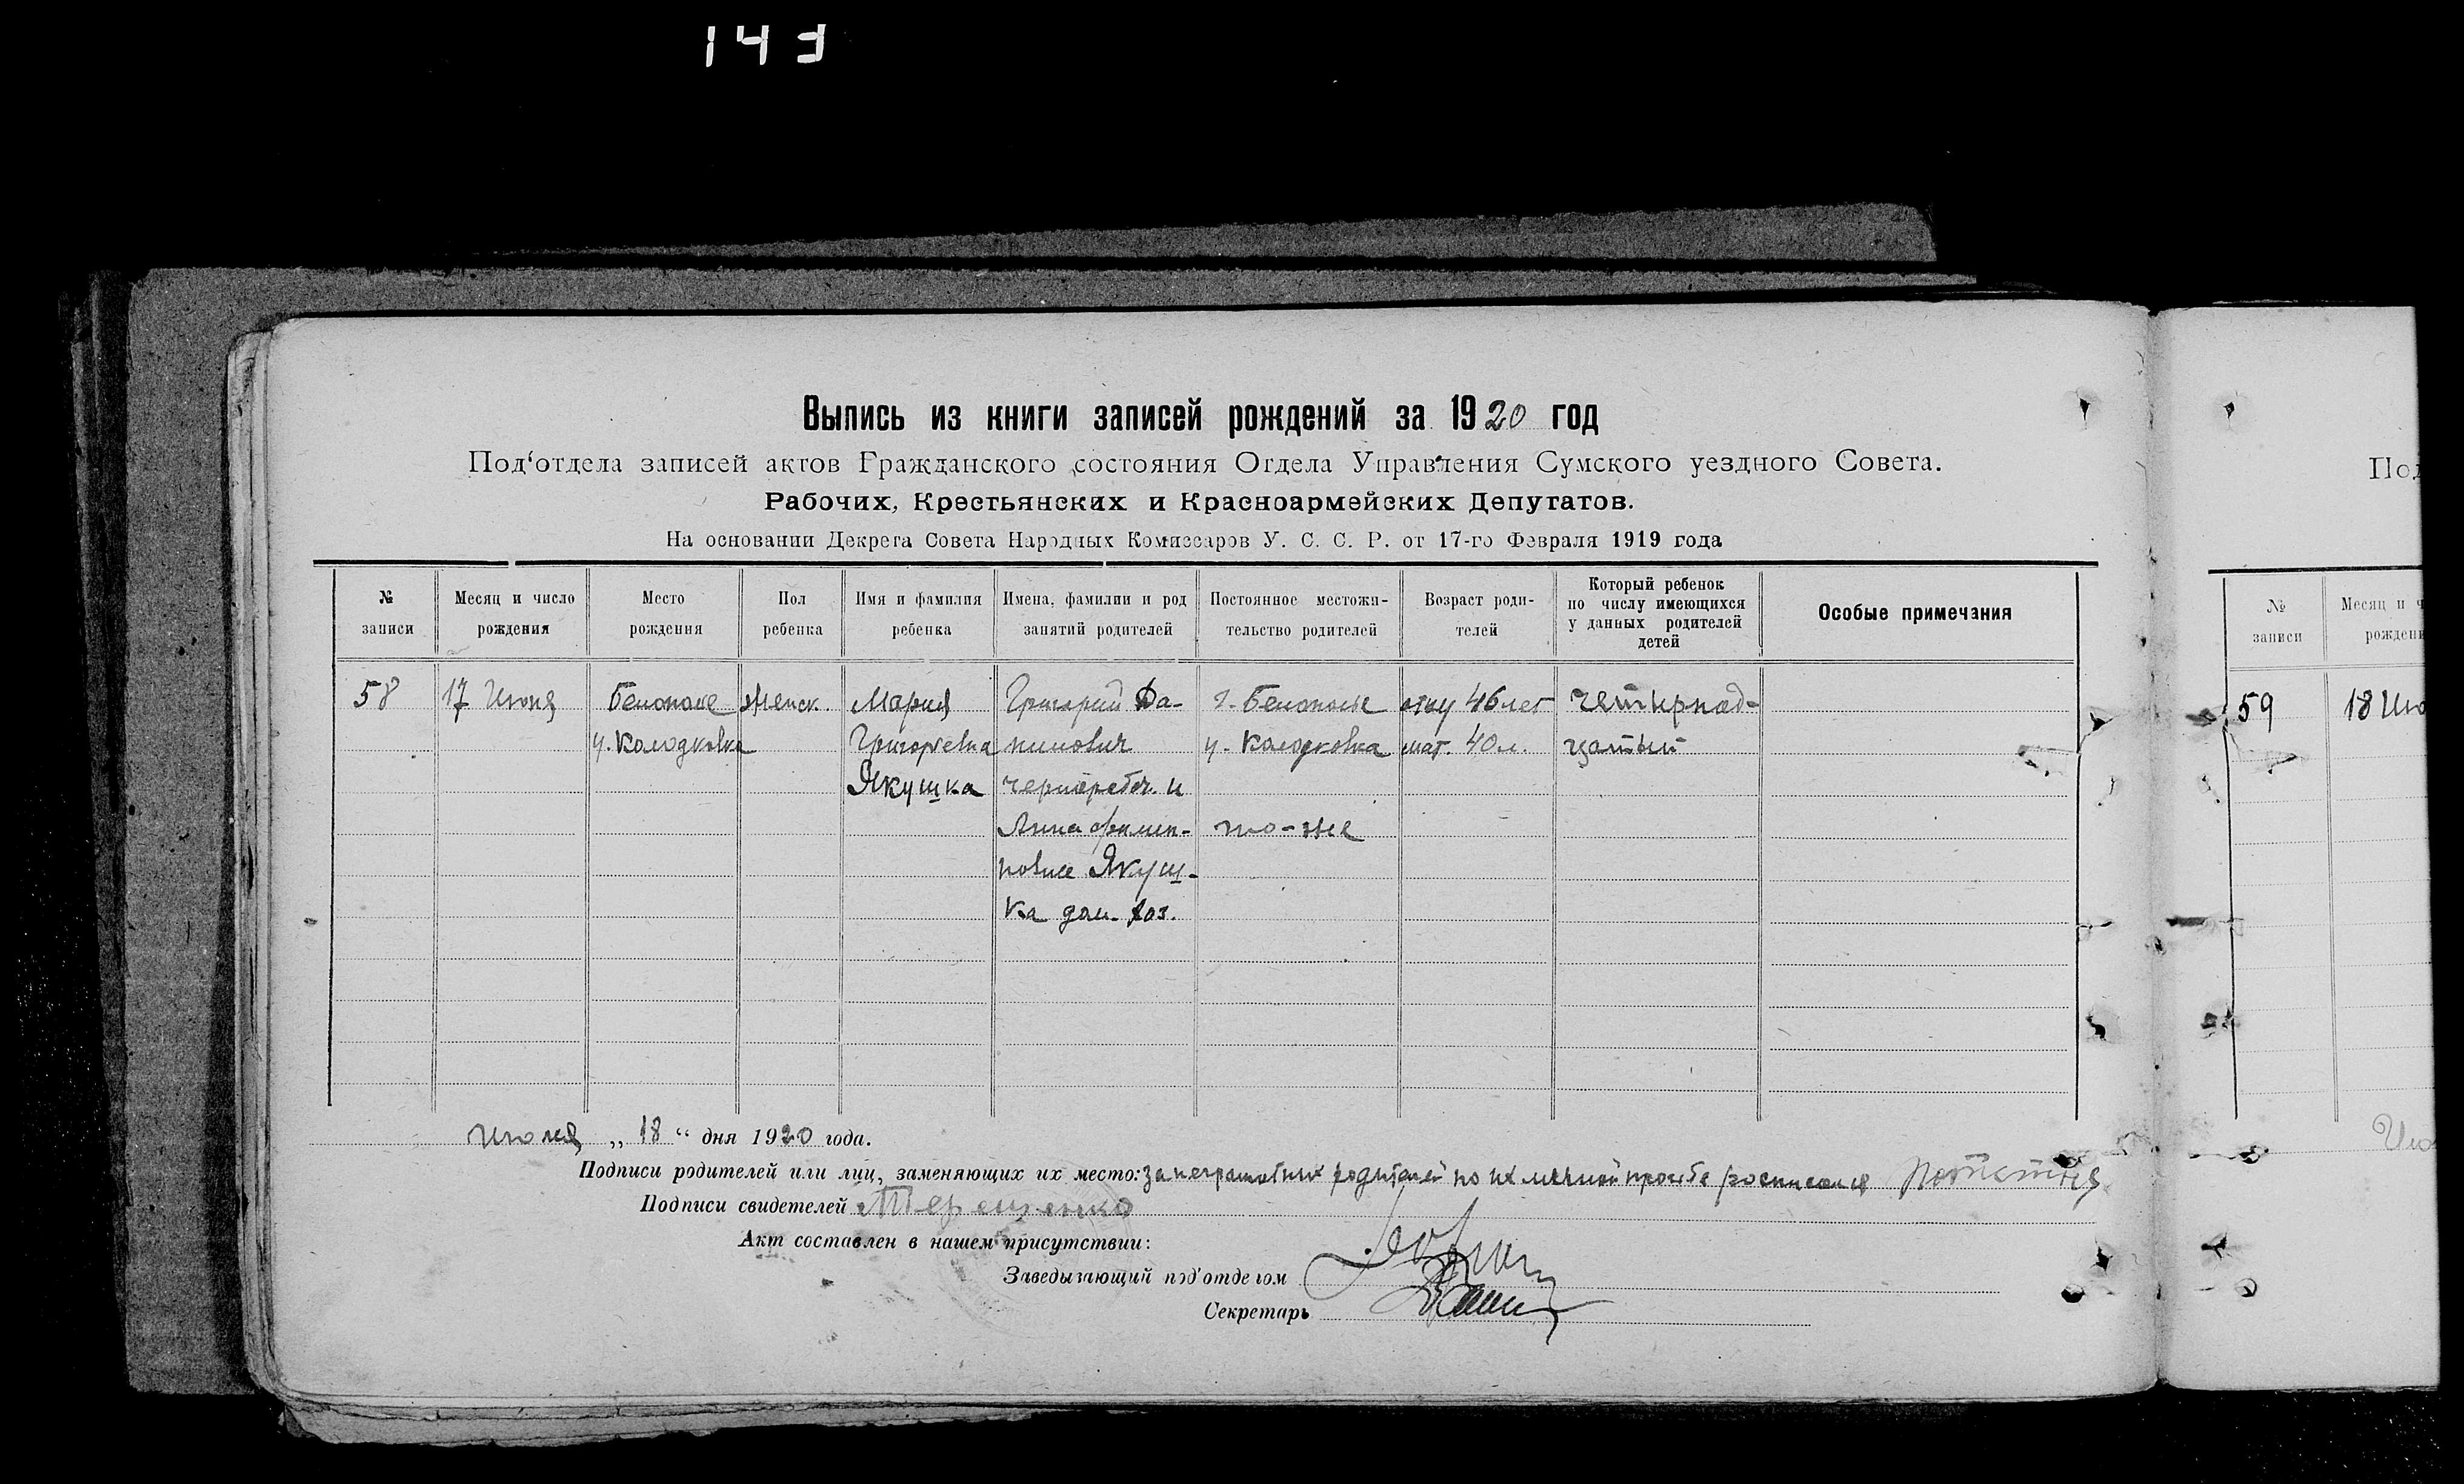 143
Выпись из книги записей рождений за 1920 год
Под‘отдела записей актов Гражданского состояния Отдела Управления Сумского уездного Совета.
Рабочих, Крестьянских и Красноармейских Депутатов.
На основании Декрета Совета Народных Комиссаров У. С. С. Р. от 17-го Февраля 1919 года
№ записи
Месяц и число рождения
Место рождения
Пол ребенка
Имя и фамилия ребенка
Имена, фамилии и род занятий родителей
Постоянное местожи-
тельство родителей
Возраст роди-
телей
Который ребенок
по числу имеющихся
у данных родителей
детей
Особые примечания
58
17 Июня
Белополье
у. Колодковка
Женск.
Мария
Григорьевна
Якушка
Григорий Да-
нилович
чернораб. и
Анна
Якуш-
ка дом. хоз.
г. Белополье
у. Колодковка
то-же
отцу 46 лет
мат. 40 л.
четырнад-
цатый
июня „ 18 “ дня 1920 года.
Подписи родителей или лиц, заменяющих их место: за неграмотных родителей по их личной просьбе росписался
Подписи свидетелей Терещенко
Акт составлен в нашем присутствии:
Заведывающий под‘отделом
Секретарь
Под
№ записи
Месяц и ч
рождени
59
18 Ию
Ию